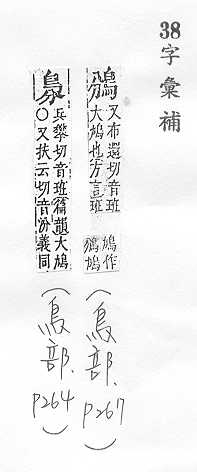 38字彙補
鳻又布還切音班
大鳩也方言班
鳩作
鳻鳩
(鳥部.p267)
鳥兵攀切音班篇韻大鳩
〇又扶云切音汾義同
(鳥部.p264)